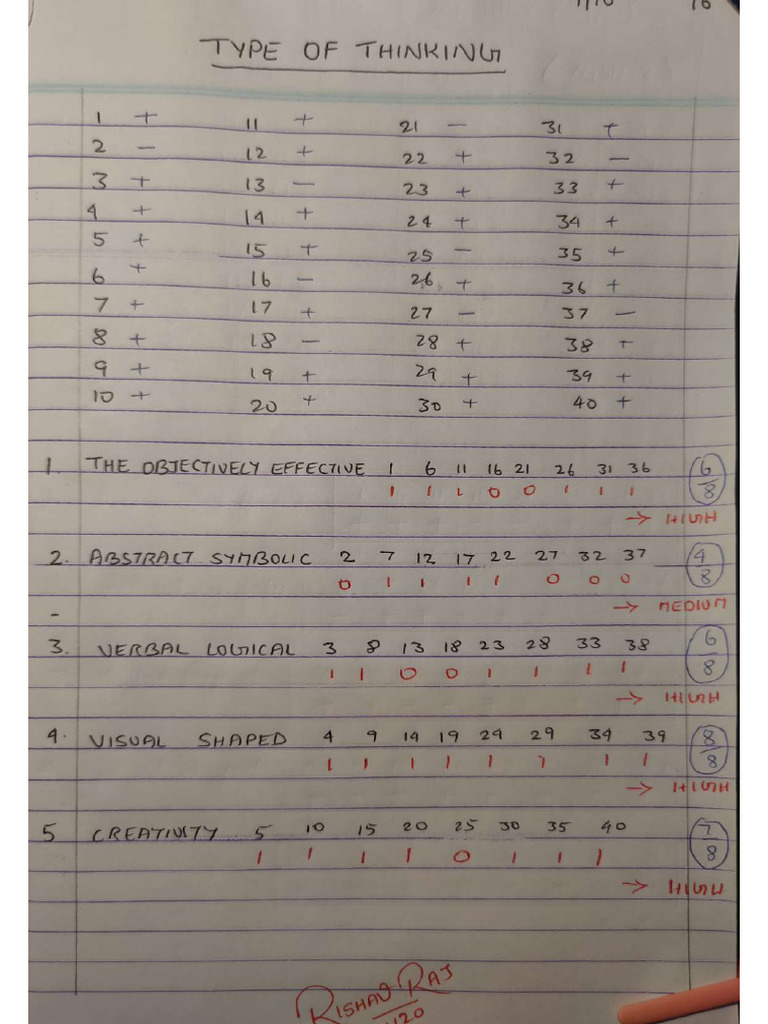 16
TYPE OF THINKING
1 + 11 + 21 - 31 +
2 - 12 + 22 + 32 -
3 + 13 - 23 + 33 +
4 + 14 + 24 + 34 +
5 + 15 + 25 - 35 +
6 + 16 - 26 + 36 +
7 + 17 + 27 - 37 -
8 + 18 - 28 + 38 +
9 + 19 + 29 + 39 +
10 + 20 + 30 + 40 +
1. THE OBJECTIVELY EFFECTIVE 1 6 11 16 21 26 31 36 6/8
1 1 1 0 0 1 1 1
→ HIGH
2. ABSTRACT SYMBOLIC 2 7 12 17 22 27 32 37 4/8
0 1 1 1 1 0 0 0
→ MEDIUM
-
3. VERBAL LOGICAL 3 8 13 18 23 28 33 38 6/8
1 1 0 0 1 1 1 1
→ HIGH
4. VISUAL SHAPED 4 9 14 19 24 29 34 39 8/8
1 1 1 1 1 1 1 1
→ HIGH
5 CREATIVITY 5 10 15 20 25 30 35 40 7/8
1 1 1 1 0 1 1 1
→ HIGH
RISHAV RAJ